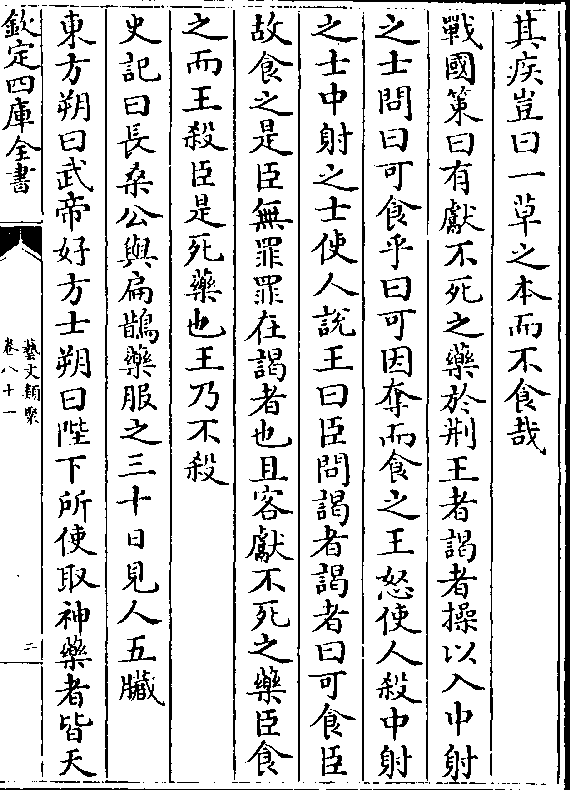 其疾豈曰一草之本而不食哉
戰國策曰有獻不死之藥於荆王者謁者操以入中射
之士問曰可食乎曰可因奪而食之王怒使人殺中射
之士中射之士使人説王曰臣問謁者謁者曰可食臣
故食之是臣無罪罪在謁者也且客獻不死之藥臣食
之而王殺臣是死藥也王乃不殺
史記曰長桑公與扁鵲藥服之三十日見人五臟
東方朔曰武帝好方士朔曰陛下所使取神藥者皆天
欽定四庫全書
藝文類聚
卷八十一
二